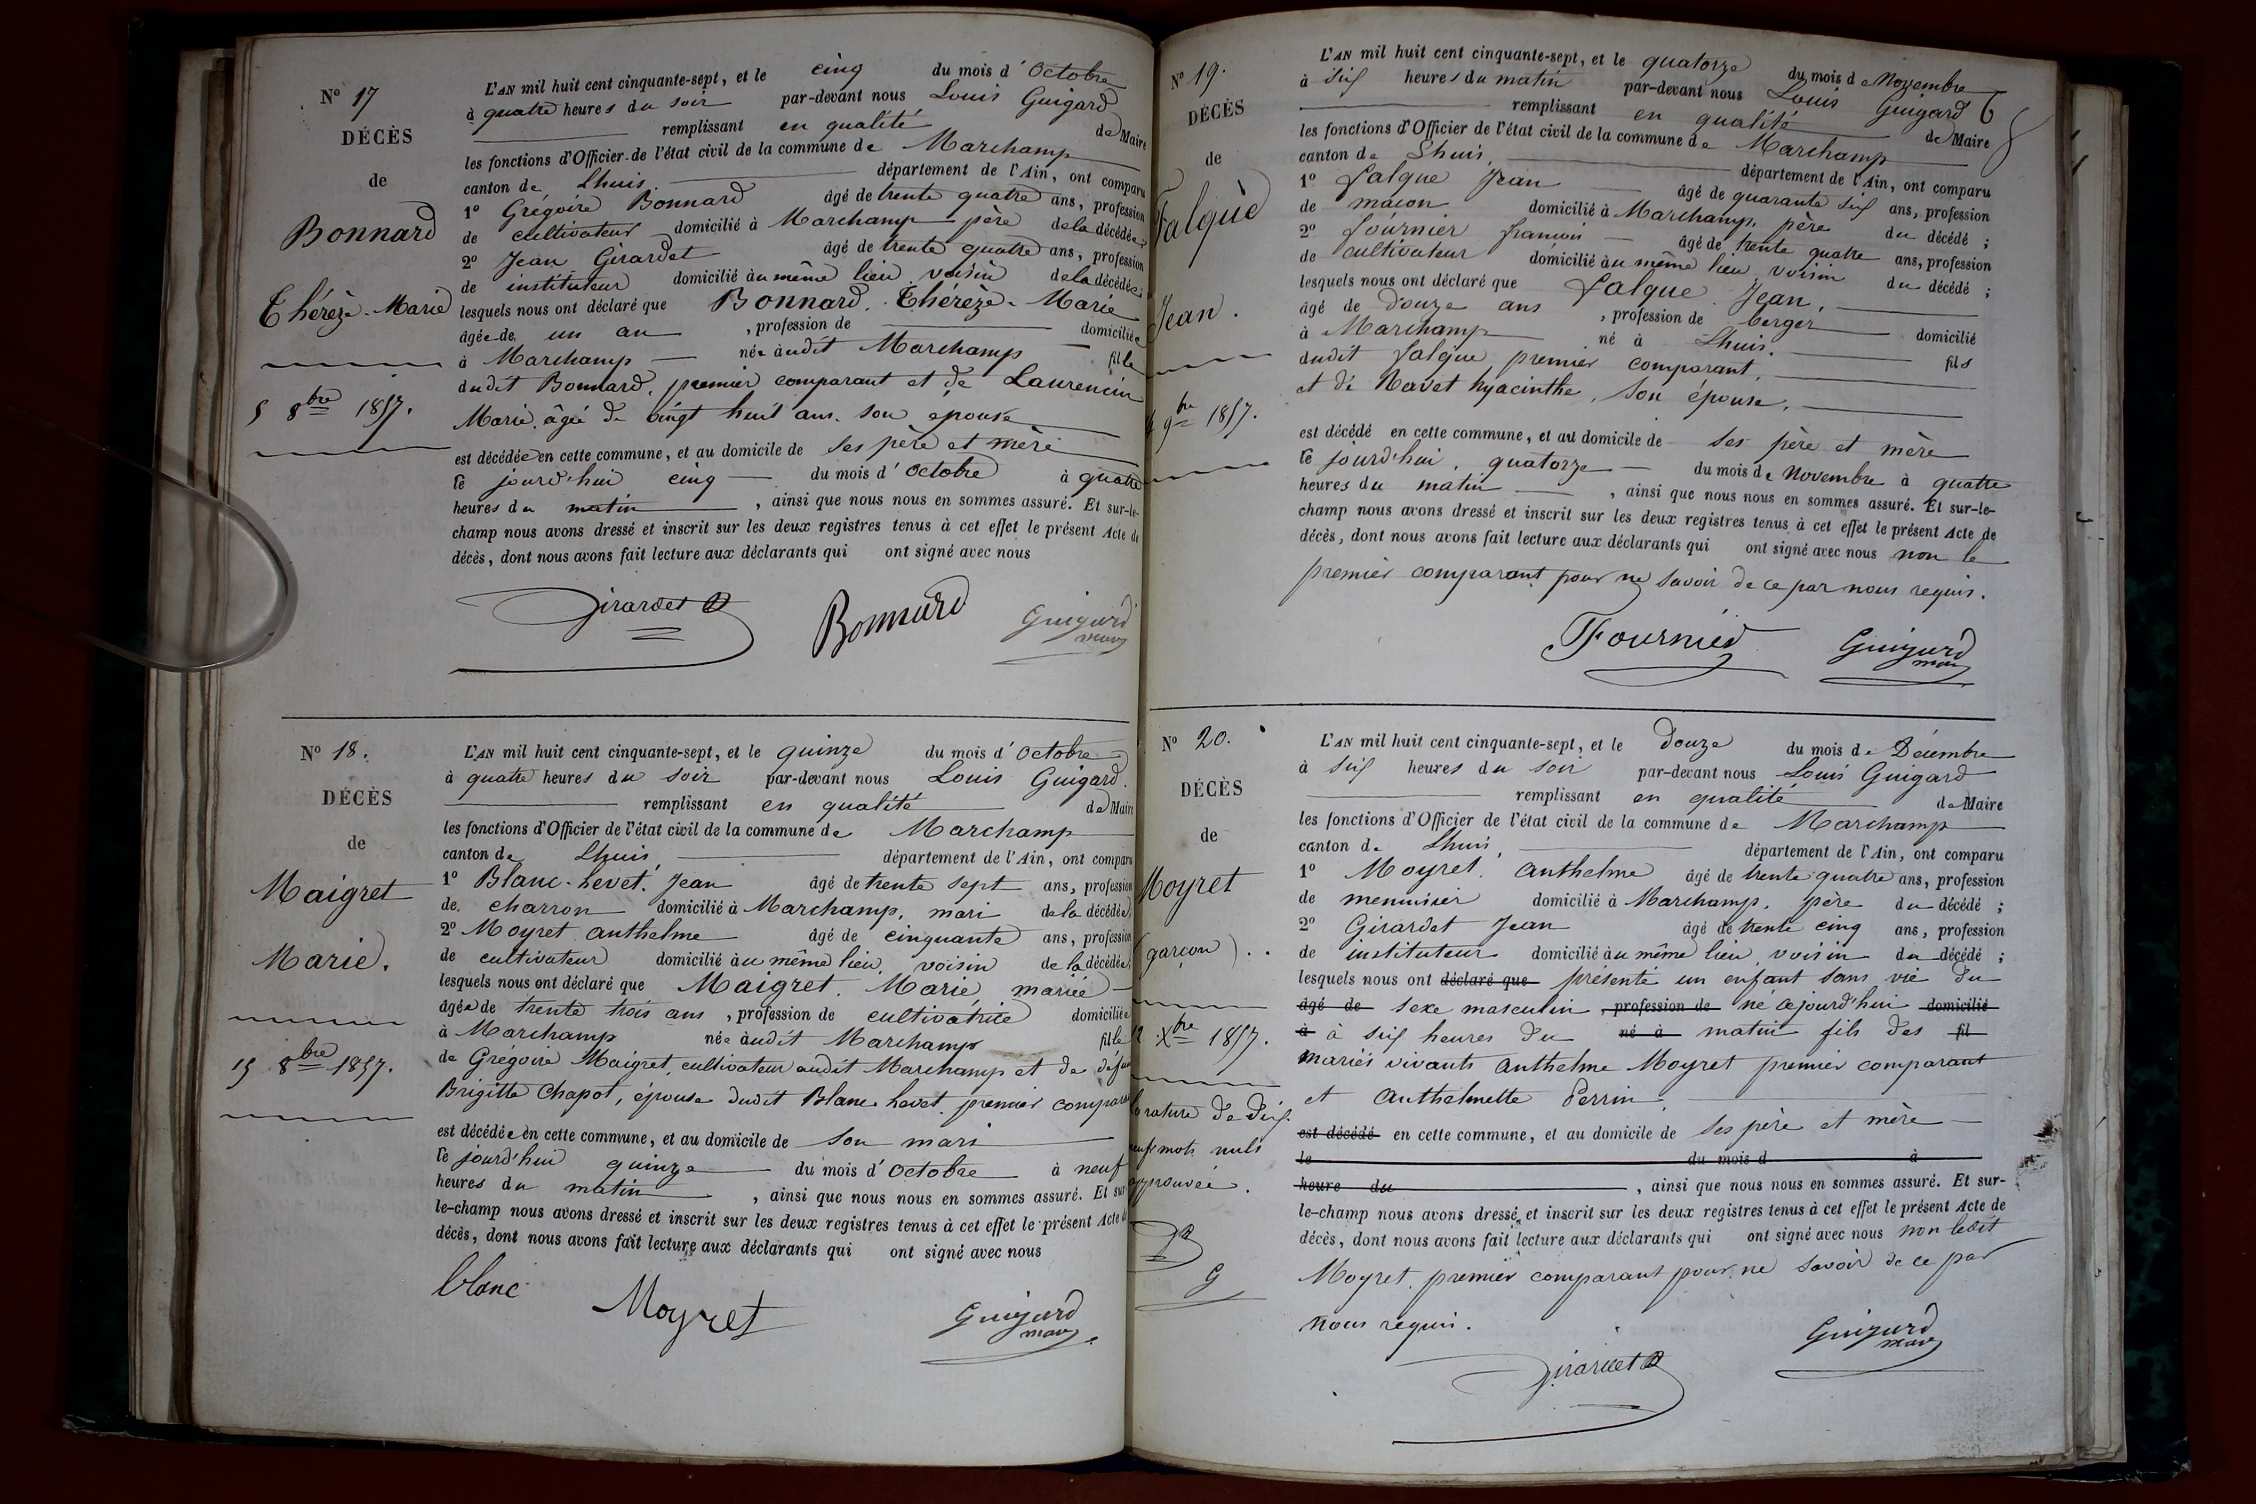 N° 17
DÉCÈS
de
Bonnard
Thérèze-Marie
5 8bre 1857.
L'AN mil huit cent cinquante-sept, et le cinq du mois d'Octobre
à quatre heures du soir par-devant nous Louis Guigard
remplissant en qualité de Maire
les fonctions d'Officier de l'état civil de la commune de Marchamp
canton de Lhuis. département de l'Ain, ont comparu
1° Grégoire Bonnard âgé de trente quatre ans, profession
de cultivateur domicilié à Marchamp père de la décédée;
2° Jean Girardet âgé de trente quatre ans, profession
de instituteur domicilié au même lieu, voisin de la décédée;
lesquels nous ont déclaré que Bonnard. Thérèze-Marie
âgée de un an, profession de domiciliée
à Marchamp née audit Marchamp fille
dudit Bonnard, premier comparant et de Laurencin
Marie, âgée de vingt huit ans. son épouse
est décédée en cette commune, et au domicile de ses père et mère
le jourd'hui cinq du mois d'Octobre à quatre
heures du matin, ainsi que nous nous en sommes assuré. Et sur-le-
champ nous avons dressé et inscrit sur les deux registres tenus à cet effet le présent Acte de
décès, dont nous avons fait lecture aux déclarants qui ont signé avec nous
Girardet Bonnard Guigard
maire
N° 18.
DÉCÈS
de
Maigret
Marie.
15 8bre 1857.
L'AN mil huit cent cinquante-sept, et le quinze du mois d'Octobre
à quatre heures du soir par-devant nous Louis Guigard.
remplissant en qualité de Maire
les fonctions d'Officier de l'état civil de la commune de Marchamp
canton de Lhuis, département de l'Ain, ont comparu
1° Blanc-hevet. Jean âgé de trente sept ans, profession
de charron domicilié à Marchamp, mari de la décédée;
2° Moyret anthelme âgé de cinquante ans, profession
de cultivateur domicilié au même lieu, voisin de la décédée;
lesquels nous ont déclaré que Maigret. Marie, mariée
âgée de trente trois ans, profession de cultivatrice domiciliée
à Marchamp née audit Marchamp fille
de Grégoire Maigret, cultivateur audit Marchamp et de défunte
Brigitte Chapot, épouse dudit Blanc-hevet. premier comparant
est décédée en cette commune, et au domicile de son mari
le jourd'hui quinze du mois d'Octobre à neuf
heures du matin, ainsi que nous nous en sommes assuré. Et sur
le-champ nous avons dressé et inscrit sur les deux registres tenus à cet effet le présent Acte de
décès, dont nous avons fait lecture aux déclarants qui ont signé avec nous
blanc Moyret Guigard
maire
N° 19.
DÉCÈS
de
Falque
Jean.
9bre 1857.
L'AN mil huit cent cinquante-sept, et le quatorze du mois de Novembre
à six heures du matin par-devant nous Louis Guigard
remplissant en qualité de Maire
les fonctions d'Officier de l'état civil de la commune de Marchamp
canton de Lhuis, département de l'Ain, ont comparu
1° falque Jean âgé de quarante six ans, profession
de maçon domicilié à Marchamp, père du décédé;
2° fournier françois âgé de trente quatre ans, profession
de cultivateur domicilié au même lieu, voisin du décédé;
lesquels nous ont déclaré que falque. Jean,
âgé de douze ans, profession de berger domicilié
à Marchamp né à Lhuis. fils
dudit falque premier comparant,
et de Navet hyacinthe, son épouse.
est décédé en cette commune, et au domicile de ses père et mère
le jourd'hui, quatorze du mois de Novembre à quatre
heures du matin, ainsi que nous nous en sommes assuré. Et sur-le-
champ nous avons dressé et inscrit sur les deux registres tenus à cet effet le présent Acte de
décès, dont nous avons fait lecture aux déclarants qui ont signé avec nous non le
premier comparant pour ne savoir de ce par nous requis.
Fournier Guigard
maire
N° 20.
DÉCÈS
de
Moyret
(garçon)..
12 Xbre 1857.
la rature de dix
neuf mots nuls
approuvée.
G
L'AN mil huit cent cinquante-sept, et le douze du mois de Décembre
à six heures du soir par-devant nous Louis Guigard
remplissant en qualité de Maire
les fonctions d'Officier de l'état civil de la commune de Marchamp
canton de Lhuis, département de l'Ain, ont comparu
1° Moyret. anthelme âgé de trente quatre ans, profession
de menuisier domicilié à Marchamp, père du décédé;
2° Girardet Jean âgé de trente cinq ans, profession
de instituteur domicilié au même lieu, voisin du décédé;
lesquels nous ont déclaré que présenté un enfant sans vie du
âgé de sexe masculin, profession de né cejourd'hui domicilié
à à six heures du né à matin fils des fil
mariés vivants anthelme Moyret premier comparant
et anthelmette Perrin.
est décédé en cette commune, et au domicile de ses père et mère
le du mois d à
heure du, ainsi que nous nous en sommes assuré. Et sur-
le-champ nous avons dressé et inscrit sur les deux registres tenus à cet effet le présent Acte de
décès, dont nous avons fait lecture aux déclarants qui ont signé avec nous non ledit
Moyret, premier comparant pour ne savoir de ce par
nous requis.
Girardet Guigard
maire